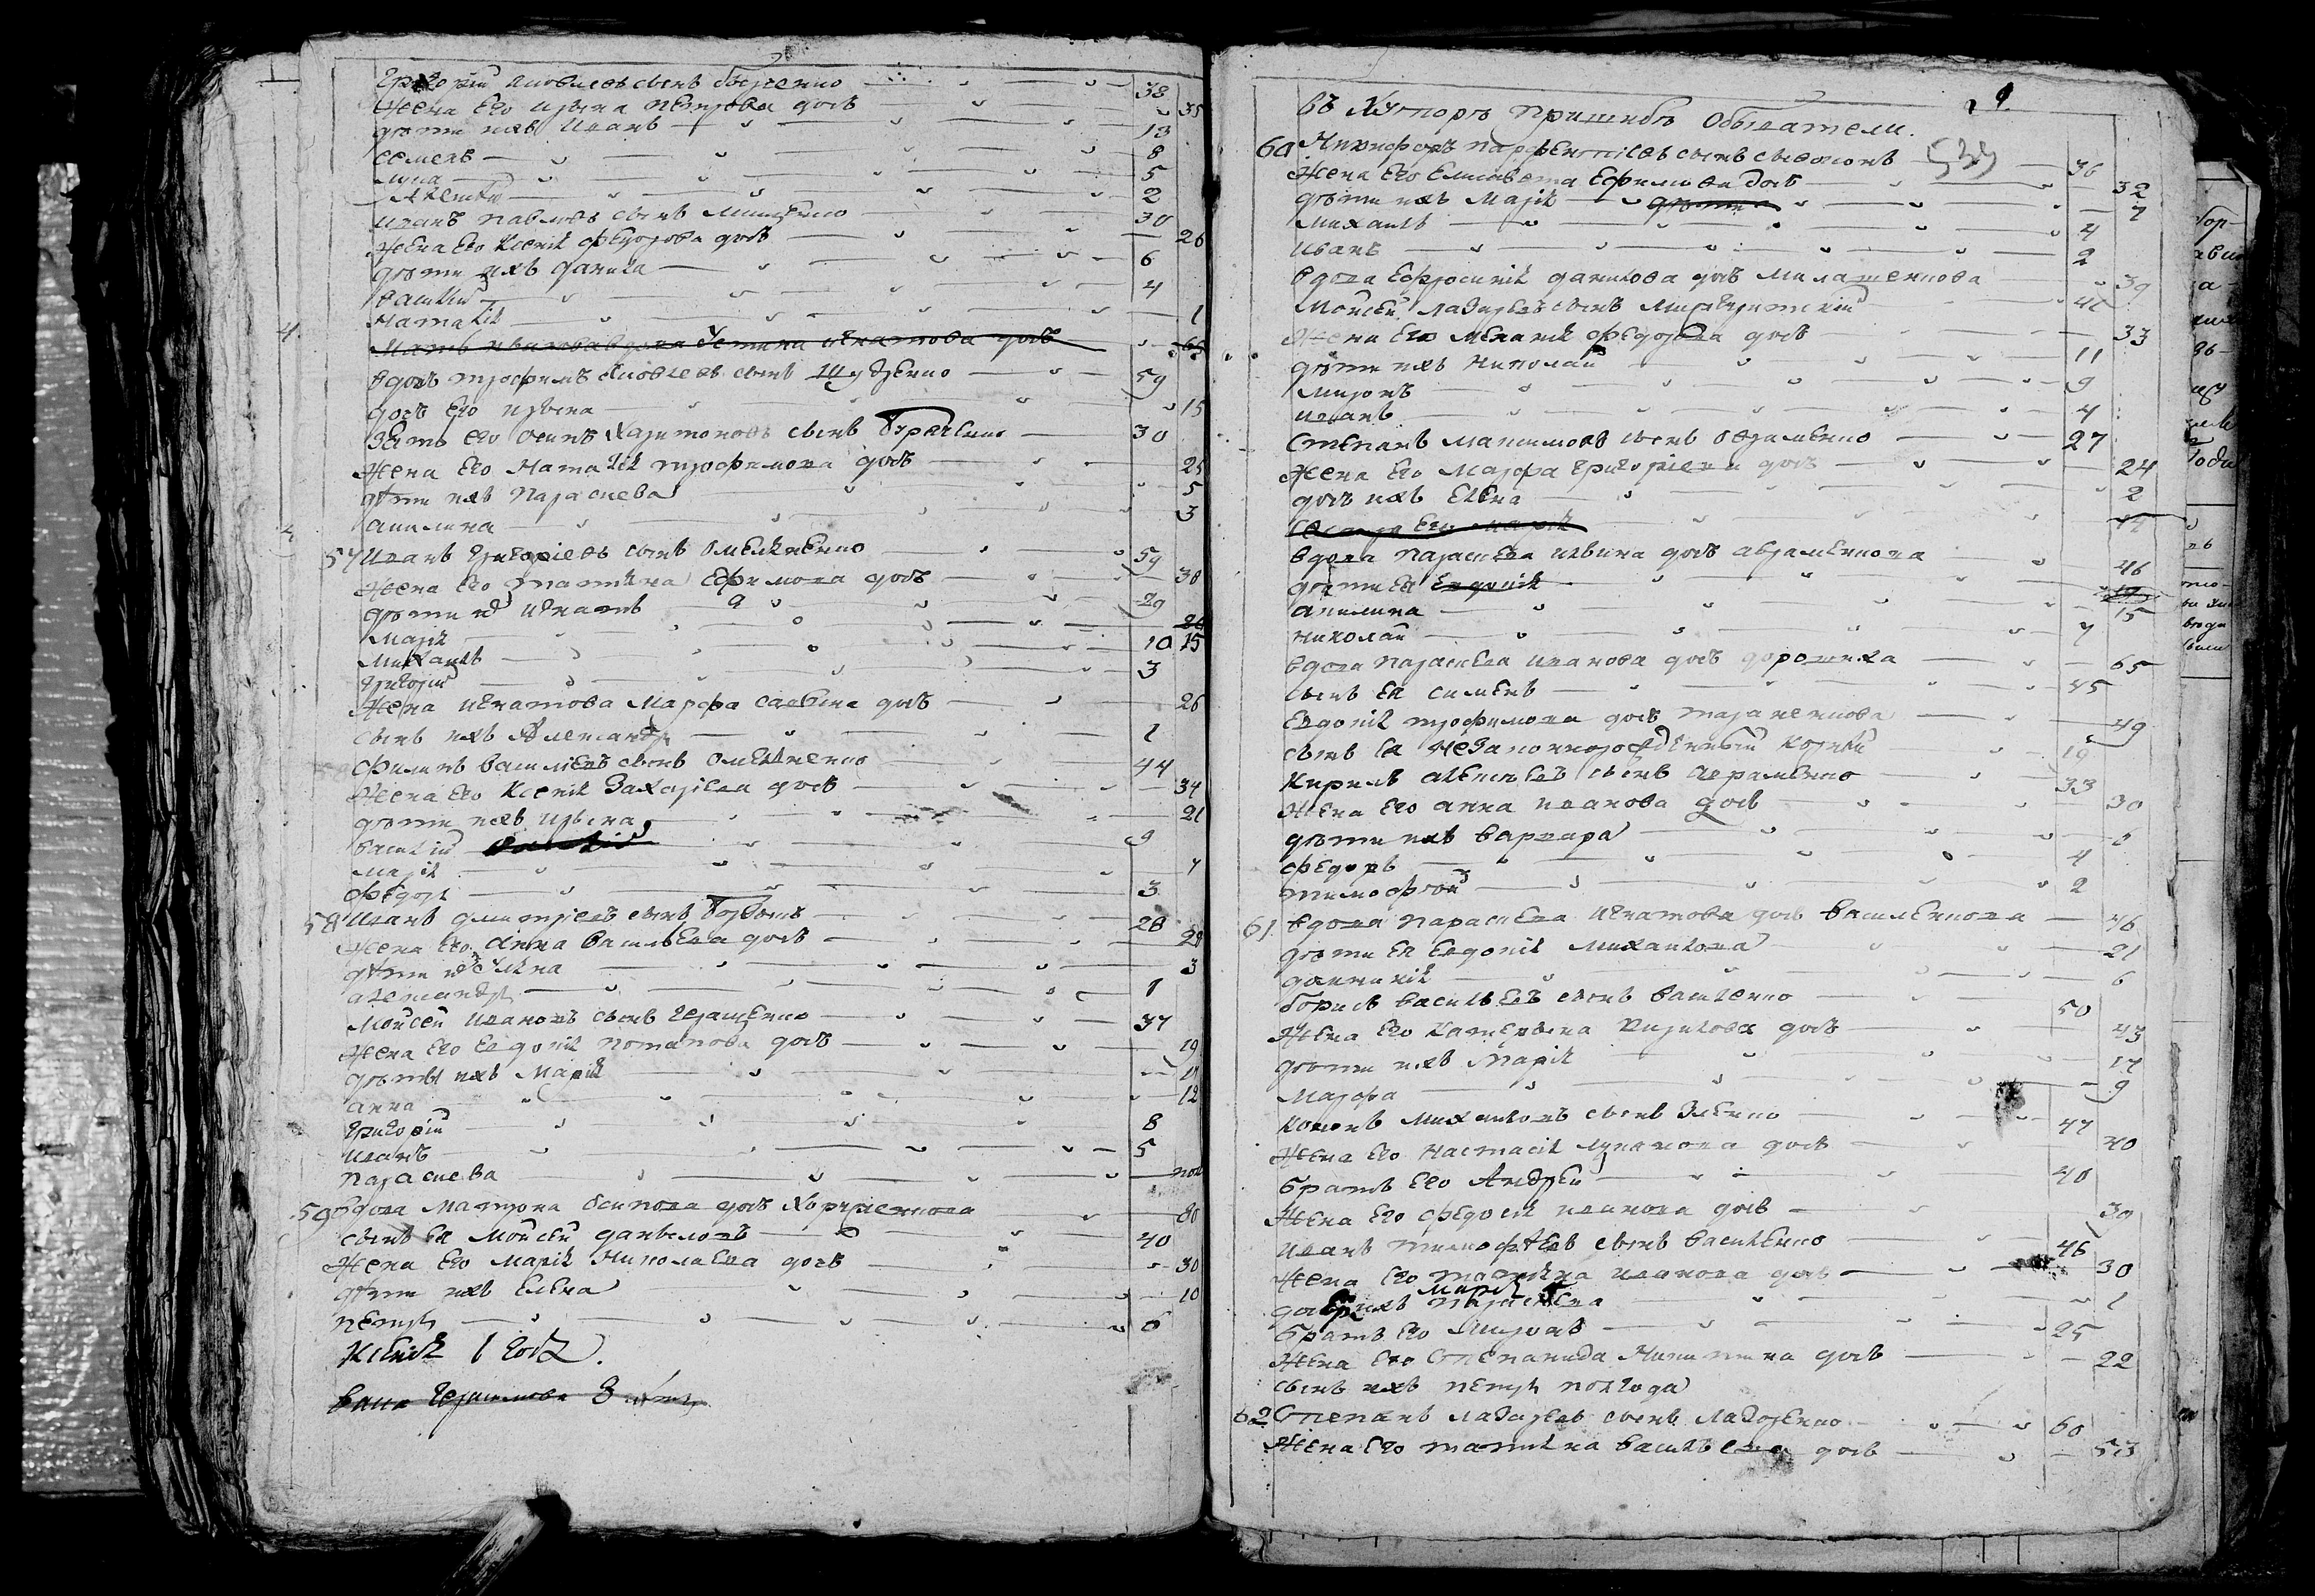 Григорій Яковлевъ сынъ 38
Жена его Ирина Петрова дочь 35
дѣти ихъ Иванъ 13
Семенъ 8
Лука 5
Алексѣй 2
Иванъ Павловъ сынъ Мищенко 30
Жена его Ксенія Федорова дочь 26
дѣти ихъ Данила 6
Василій 4
Наталія 1
Мать Иванова вдова Устина Игнатова дочь 65
вдовъ Трофимъ Яковлевъ сынъ Шудренко 59
дочь его Ирина 15
Зять его Осипъ Харитоновъ сынъ 30
Жена его Наталія Трофимова дочь 25
дѣти ихъ Параскева 5
Акилина 3
57 Иванъ Григоріевъ сынъ Омелченко 59
Жена его Татіяна Ефимова дочь 38
дѣти Игнатъ 29
Марія 15
Михаилъ 10
Григорій 3
Жена Игнатова Марфа Саввина дочь 26
сынъ ихъ Александръ 1
Филипъ Василіевъ сынъ Омелченко 44
Жена его Ксенія Захаріева дочь 34
дѣти ихъ Ирина 21
Василій 9
Марія 7
Федоръ 3
58 Иванъ Дмитріевъ сынъ 28
Жена его Анна Васильева дочь 29
дѣти Уліяна 3
Александръ 1
Мойсей Ивановъ сынъ Геращенко 37
Жена его Евдокія Потапова дочь
дѣти ихъ Марія
Анна 12
Григорій 8
Иванъ 5
Параскева пол
59 Вдова Матрона Осипова дочь
сынъ ея Мойсей Даниловъ 40
Жена его Марія Николаева дочь 30
дѣти ихъ Елена 10
Петръ 6
Ксенія 1 годъ.
въ Хуторѣ Пришибѣ Обыватели.
60 Никифоръ Парфентіевъ сынъ 36
539
Жена его Елисавета Ефимова дочь 32
дѣти ихъ Марія 7
Михаилъ 4
Иванъ 2
вдова Ефросинія Данилова дочь 39
Мойсей Лазаревъ сынъ
Жена его Меланія Федорова дочь 33
дѣти ихъ Николай 11
Миронъ 9
Иванъ 4
Степанъ Максимовъ сынъ 27
Жена его Марфа Григоріева дочь 24
дочь ихъ Елена 2
Сестра его Марія 14
вдова Параскева дочь Абраменкова 46
дѣти ея Евдокія
Акилина 15
Николай 7
вдова Параскева Иванова дочь 65
сынъ ея Симеонъ 45
Евдокія Трофимова дочь Тараненкова 49
сынъ ея незаконнорожденный Корній 19
Кирилъ Алексѣевъ сынъ Авраменко 33
Жена его Анна Иванова дочь 30
дѣти ихъ Варвара
Федоръ 4
Тимофей 2
61 вдова Параскева Игнатова дочь Василенкова 46
дѣти ея Евдокія Михайлова 21
6
Борисъ Васильевъ сынъ Василенко 50
Жена его Катерына Кирилова дочь 43
дѣти ихъ Марія 17
Марфа 9
Кононъ Михайловъ сынъ 47
Жена его Настасія Лукянова дочь 40
братъ его Андрей 40
Жена его Федосія Иванова дочь 39
Иванъ Тимофѣевъ сынъ Василенко 46
Жена его Татіяна Иванова дочь 30
дочь ихъ Марія 1
братъ его Миронъ 25
Жена его Степанида Никитина дочь 22
сынъ ихъ Петръ полгода
62 Степанъ Лазаревъ сынъ Лазоренко 60
Жена его Татіяна Васильева дочь 53